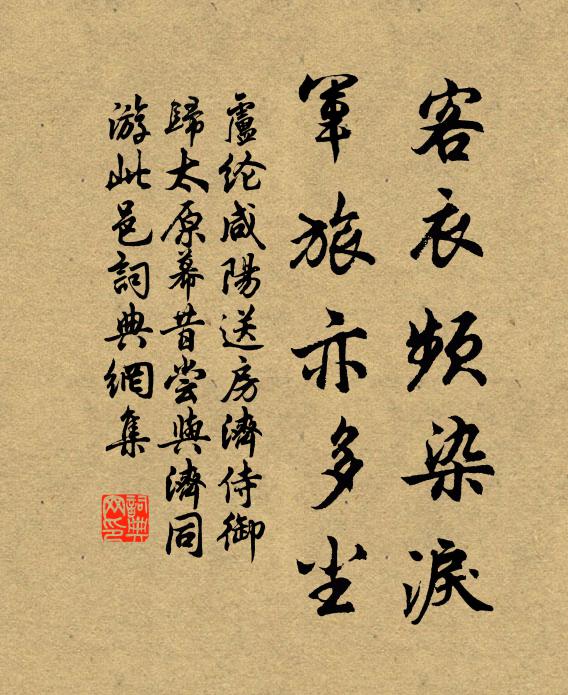 客衣频染淚
軍旅亦多尘
盧纶咸陽送房濟侍御
歸太原幕昔尝與濟同
游此邑詞典網集
詞典
网印